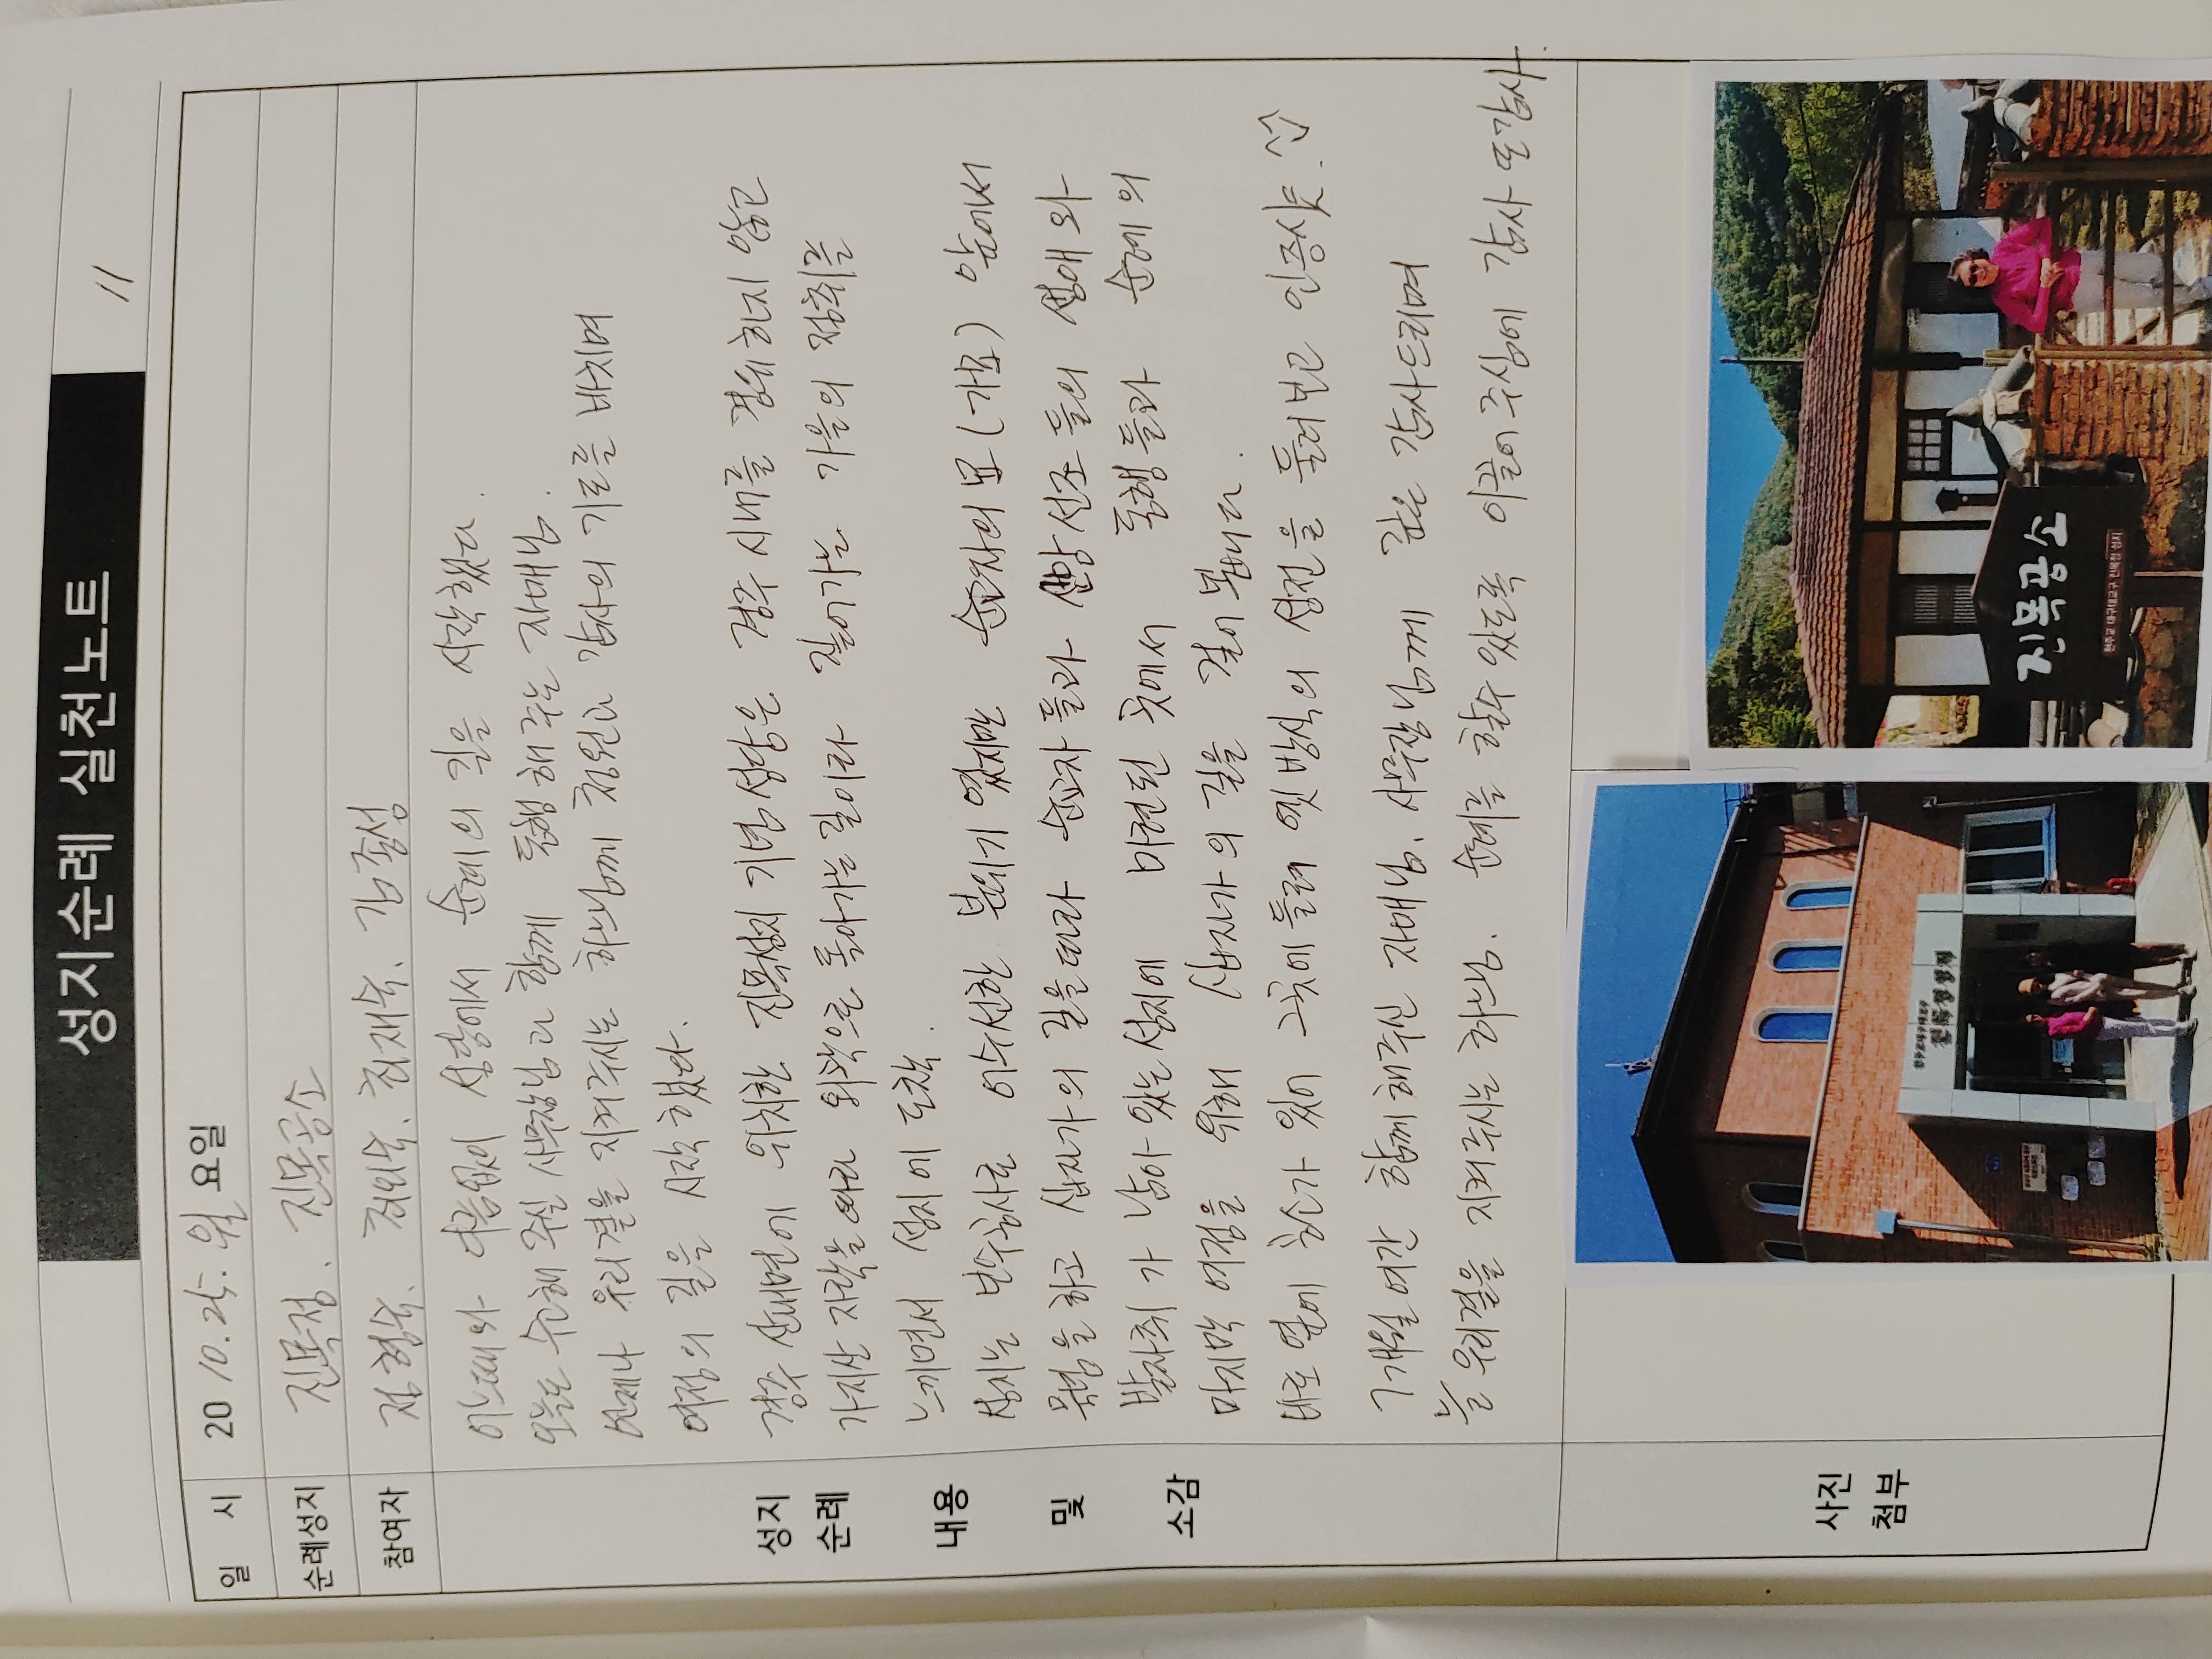 성지순례 실천노트
11
일 시 20 10. 25. 월 요일
순례성지 진목정. 진목공소
참여자 정형숙. 최외숙. 최재숙. 김종성
성지
순례
내용
및
소감
어느때와 다름없이 성당에서 순례의 길을 시작했다.
오늘도 수고해 주실 사무장님과 함께 동행해주는 자매님.
언제나 우리곁을 지켜주시는 하느님께 청원과 감사의 기도를 바치며
여정의 길을 시작했다.
경주 산내면에 위치한 진목성지 기념성당은 경주 시내를 경유하지 않고
가지산 자락을 따라 외곽으로 돌아가는 길이라 짙어가는 가을의 정취를
느끼면서 성지에 도착.
성지는 보수공사로 어수선한 분위기 였지만 순교자의 묘(가묘) 앞에서
묵념을 하고 십자가의 길을 따라 순교자 들과 신앙선조 들의 생애와
발자취가 남아 있는 성지에 마련된 곳에서 동행들과 순례의
마지막 여정을 위해 십자가의 길을 걸어 봅니다.
바로 옆에 공소가 있어 그곳에 들려 옛 방식의 성전을 둘러보고 인증샷.
7개월 여간 함께 해주신 자매님. 사무장님께 깊은 감사드리며
늘 우리곁을 지켜주시는 하느님. 순례를 할수 있도록 이끌어 주심에 감사 또 감사.
사진
첨부
천주교대구대교구
진목정성지
진목공소
천주교 대구대교구 진목정 성지